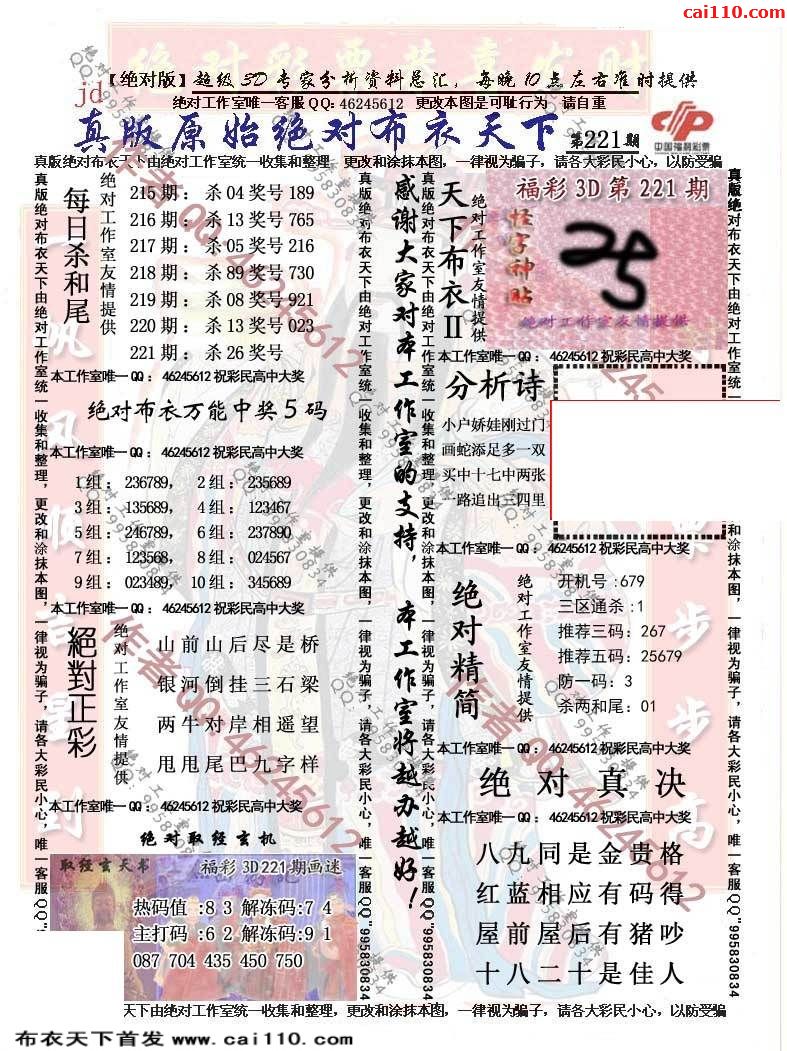 cai110.com
【绝对版】超级3D专家分析资料总汇，每晚10点左右准时提供
jd
绝对工作室唯一客服QQ: 46245612 更改本图是可耻行为 请自重
真版原始绝对布衣天下 第221期
中国福利彩票
真版绝对布衣天下由绝对工作室统一收集和整理，更改和涂抹本图，一律视为骗子，请各大彩民小心，以防受骗
真版绝对布衣天下由绝对工作室统一收集和整理，更改和涂抹本图，一律视为骗子，请各大彩民小心，唯一客服QQ"995830834
每日杀和尾
绝对工作室友情提供
215期：杀04奖号189
216期：杀13奖号765
217期：杀05奖号216
218期：杀89奖号730
219期：杀08奖号921
220期：杀13奖号023
221期：杀26奖号
本工作室唯一QQ：46245612祝彩民高中大奖
绝对布衣万能中奖5码
本工作室唯一QQ：46245612祝彩民高中大奖
1组：236789， 2组：235689
3组：135689， 4组：123467
5组：246789， 6组：237890
7组：123568， 8组：024567
9组：023489， 10组：345689
本工作室唯一QQ：46245612祝彩民高中大奖
絕對正彩
绝对工作室友情提供
山前山后尽是桥
银河倒挂三石梁
两牛对岸相遥望
甩甩尾巴九字样
本工作室唯一QQ：46245612祝彩民高中大奖
绝对取经玄机
取经玄天书
福彩3D221期画迷
热码值:83解冻码:74
主打码:62解冻码:91
087 704 435 450 750
感谢大家对本工作室的支持，本工作室将越办越好！
天下布衣II
绝对工作室友情提供
福彩3D第221期
怪字神贴
25
绝对工作室友情提供
本工作室唯一QQ：46245612祝彩民高中大奖
分析诗
小户娇娃刚过门
画蛇添足多一双
买中十七中两张
一路追出三四里
本工作室唯一QQ：46245612祝彩民高中大奖
绝对精简
绝对工作室友情提供
开机号:679
三区通杀:1
推荐三码:267
推荐五码:25679
防一码:3
杀两和尾:01
本工作室唯一QQ：46245612祝彩民高中大奖
绝对真决
本工作室唯一QQ：46245612祝彩民高中大奖
八九同是金贵格
红蓝相应有码得
屋前屋后有猪吵
十八二十是佳人
天下由绝对工作室统一收集和整理，更改和涂抹本图，一律视为骗子，请各大彩民小心，以防受骗
布衣天下首发 www.cai110.com
作者QQ:46245612